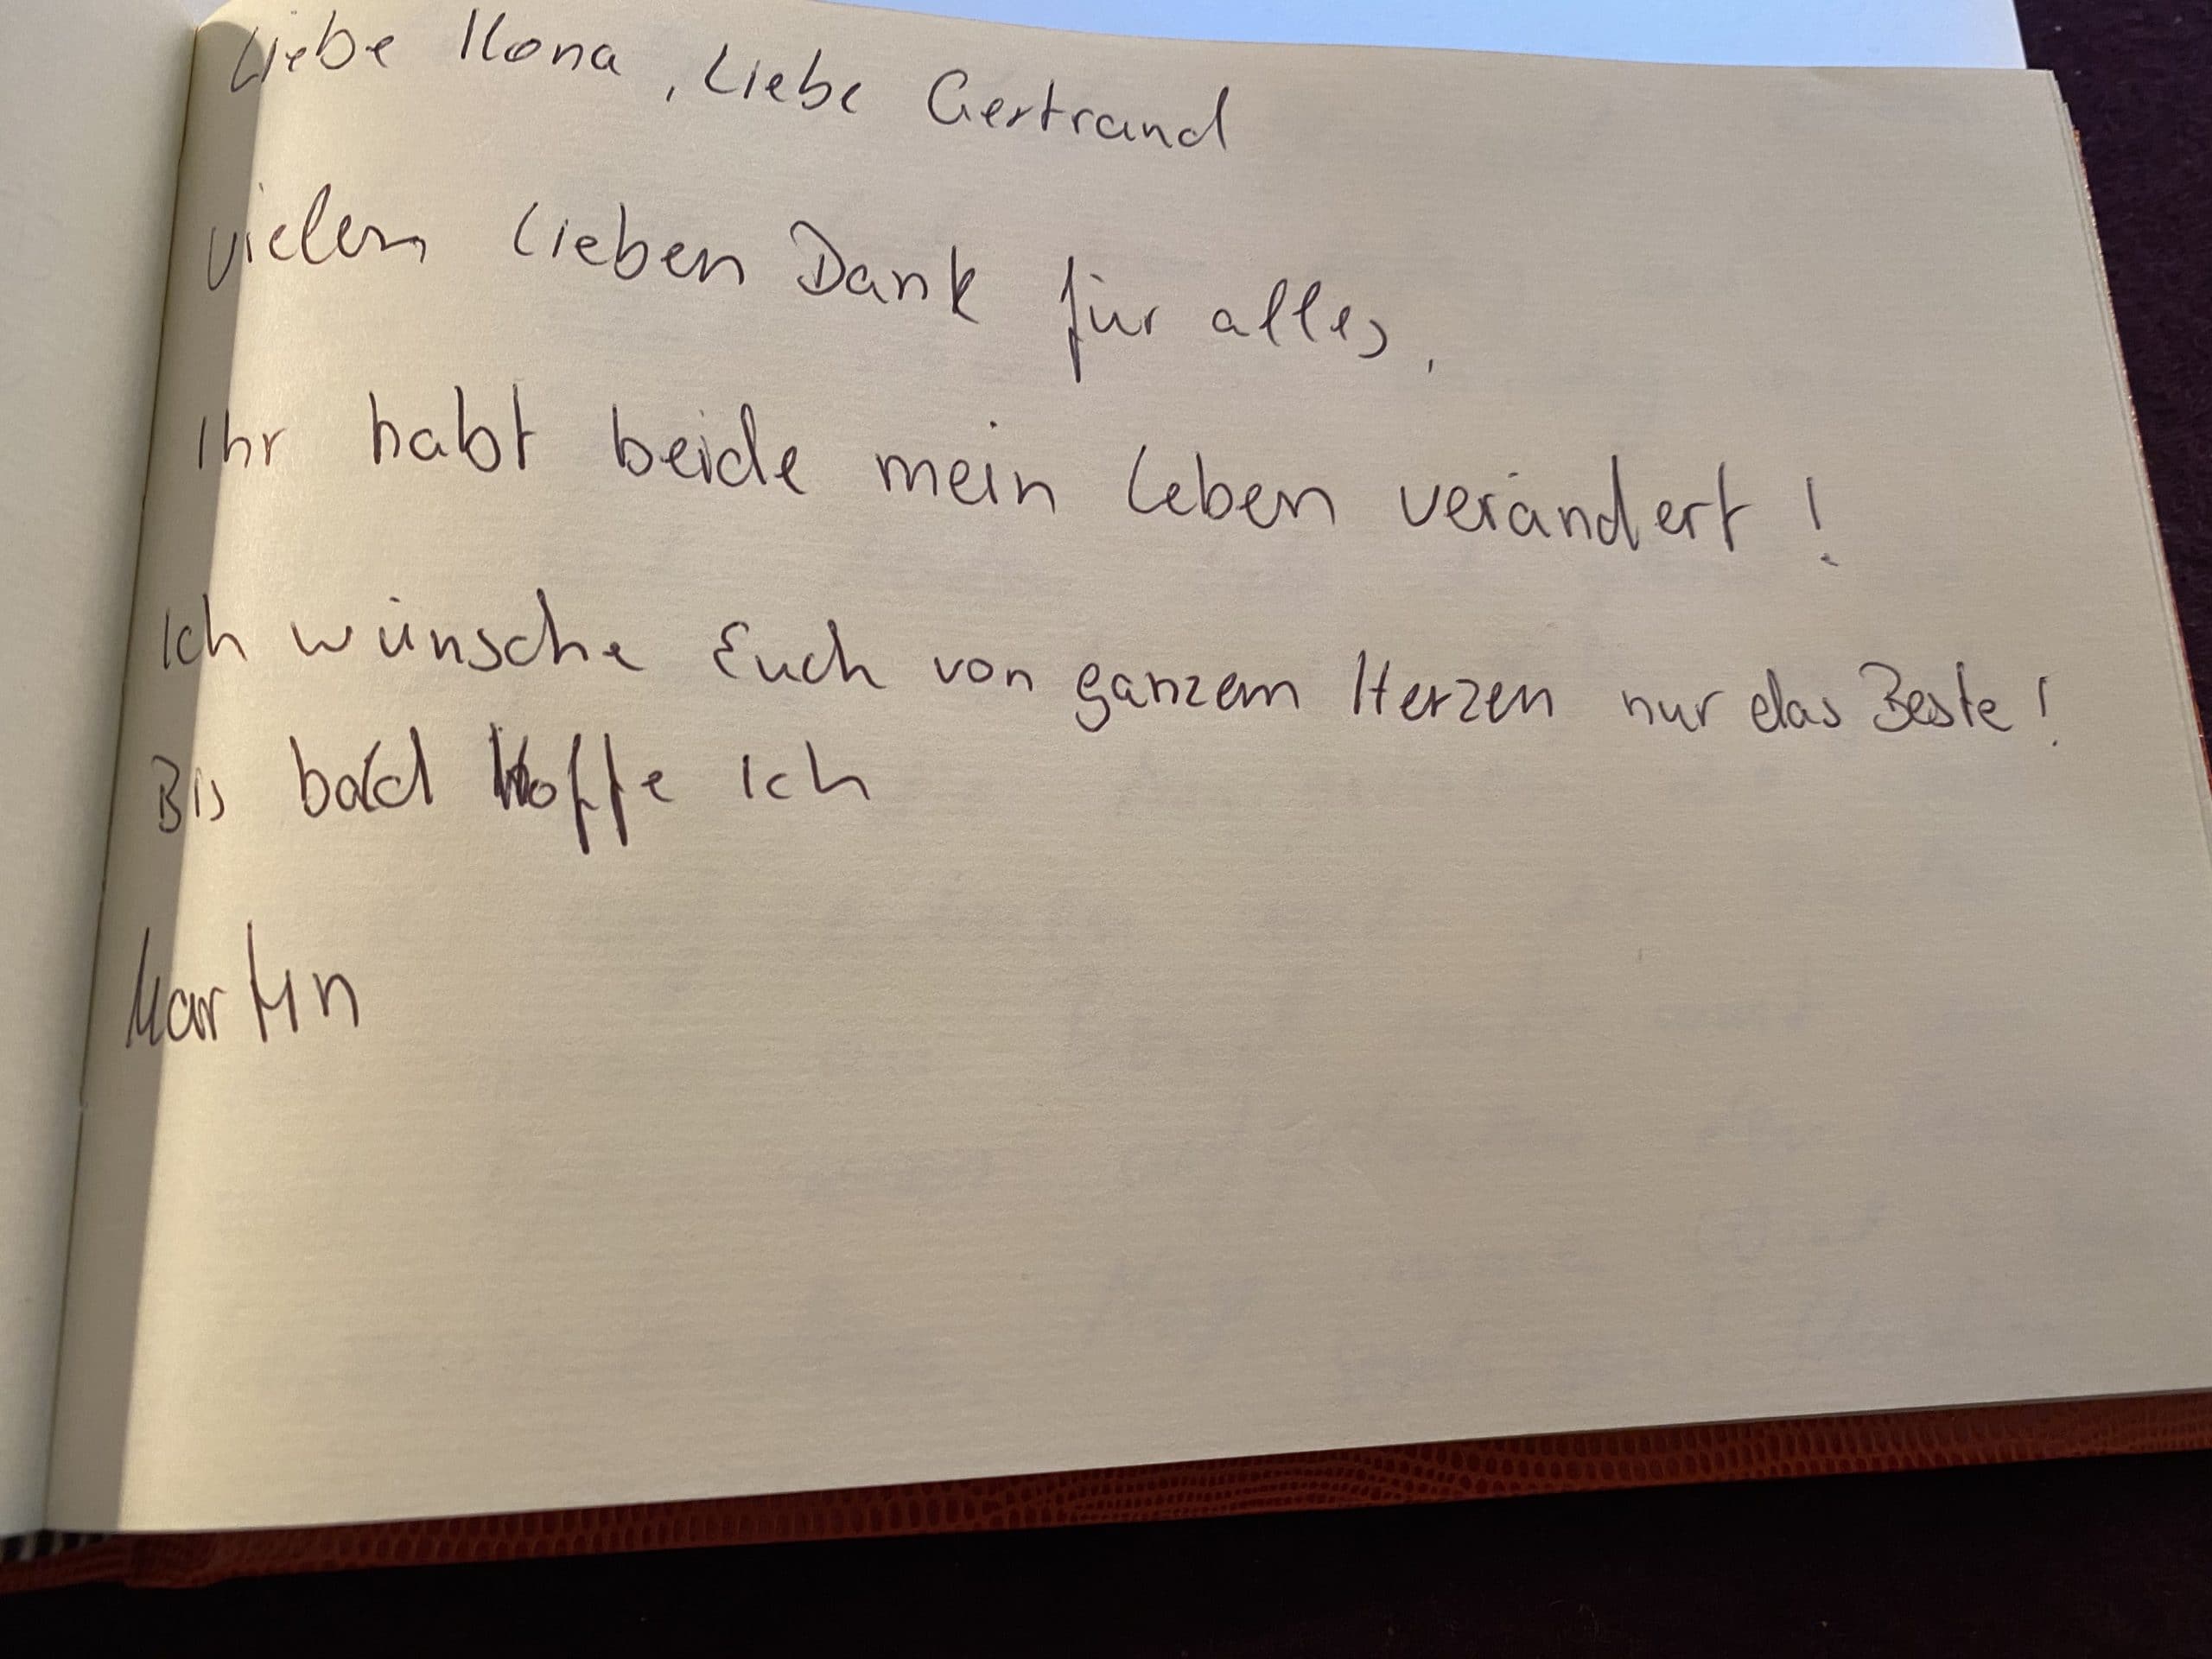 Liebe Ilona, Liebe Gertrand
vielen lieben Dank für alles,
Ihr habt beide mein Leben verändert!
Ich wünsche Euch von ganzem Herzen nur das Beste!
Bis bald hoffe Ich
Martin